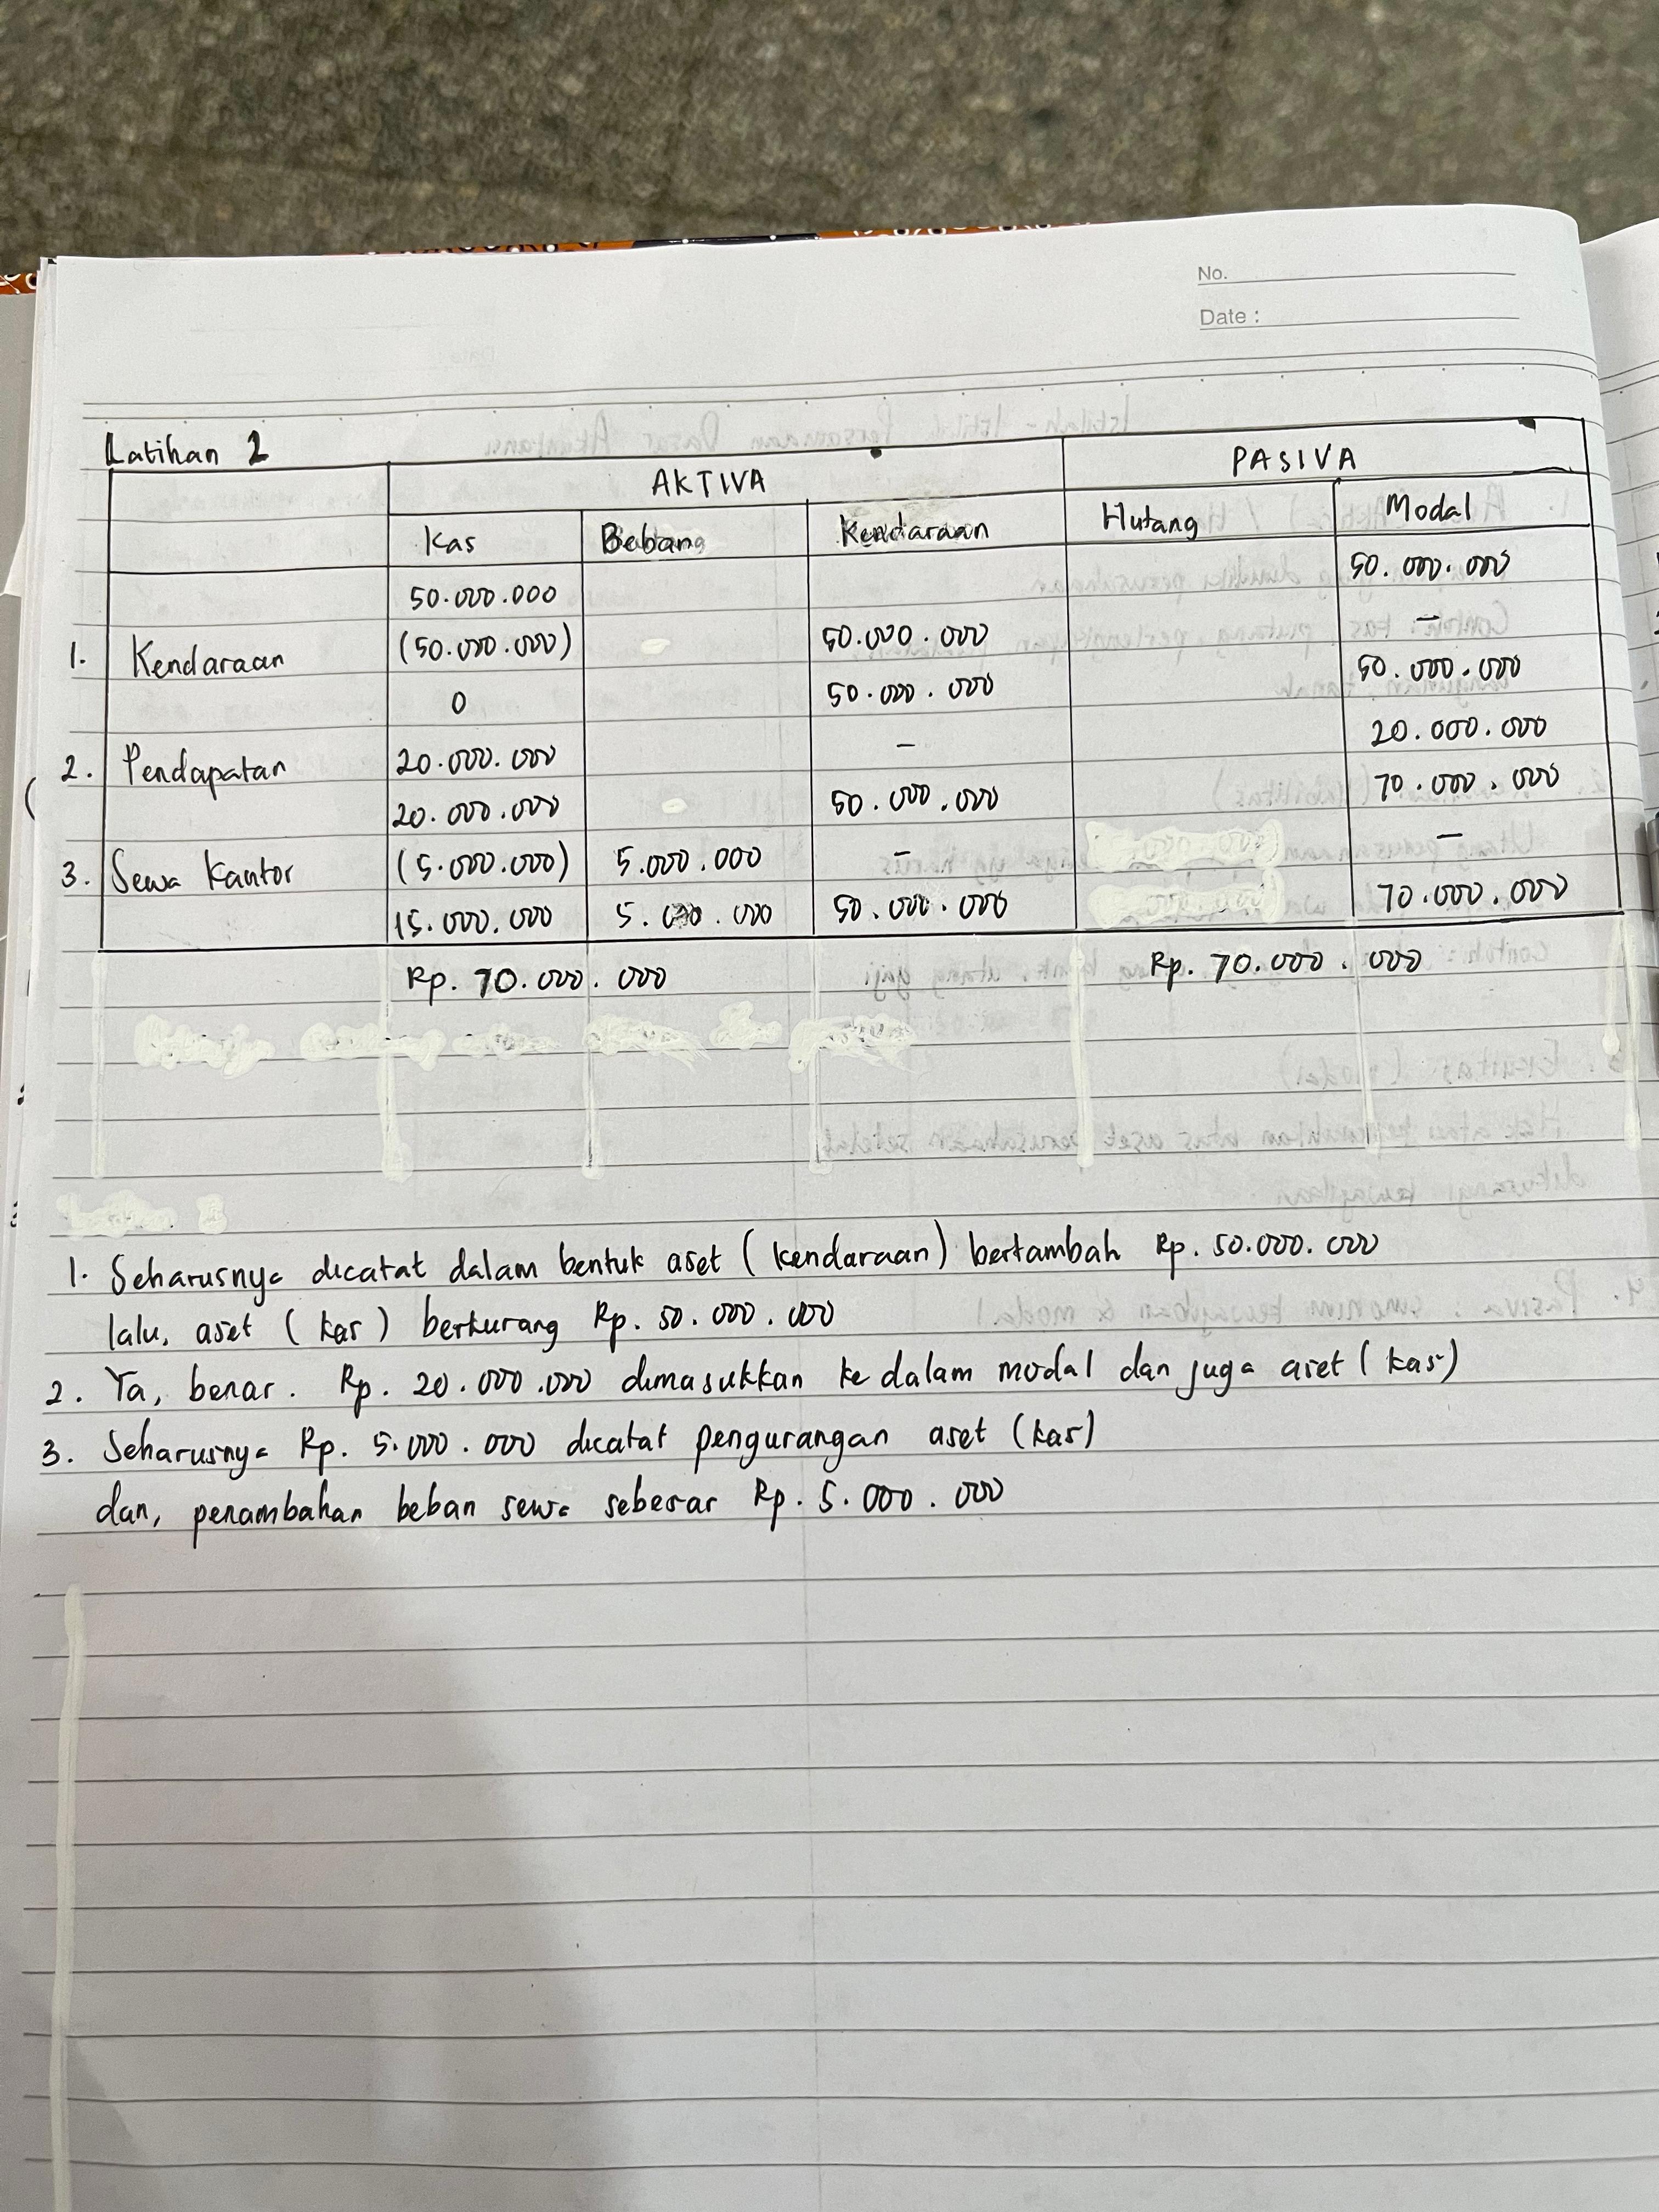 No.
Date :
Latihan 2
AKTIVA PASIVA
Kas Beban Kendaraan Hutang Modal
50.000.000 50.000.000
1. Kendaraan (50.000.000) 50.000.000 —
0 50.000.000 50.000.000
2. Pendapatan 20.000.000 — 20.000.000
20.000.000 50.000.000 70.000.000
3. Sewa Kantor (5.000.000) 5.000.000 — —
15.000.000 5.000.000 50.000.000 70.000.000
Rp. 70.000.000 Rp. 70.000.000
1. Seharusnya dicatat dalam bentuk aset (kendaraan) bertambah Rp. 50.000.000
lalu, aset (kas) berkurang Rp. 50.000.000
2. Ya, benar. Rp. 20.000.000 dimasukkan ke dalam modal dan juga aset (kas)
3. Seharusnya Rp. 5.000.000 dicatat pengurangan aset (kas)
dan, penambahan beban sewa sebesar Rp. 5.000.000